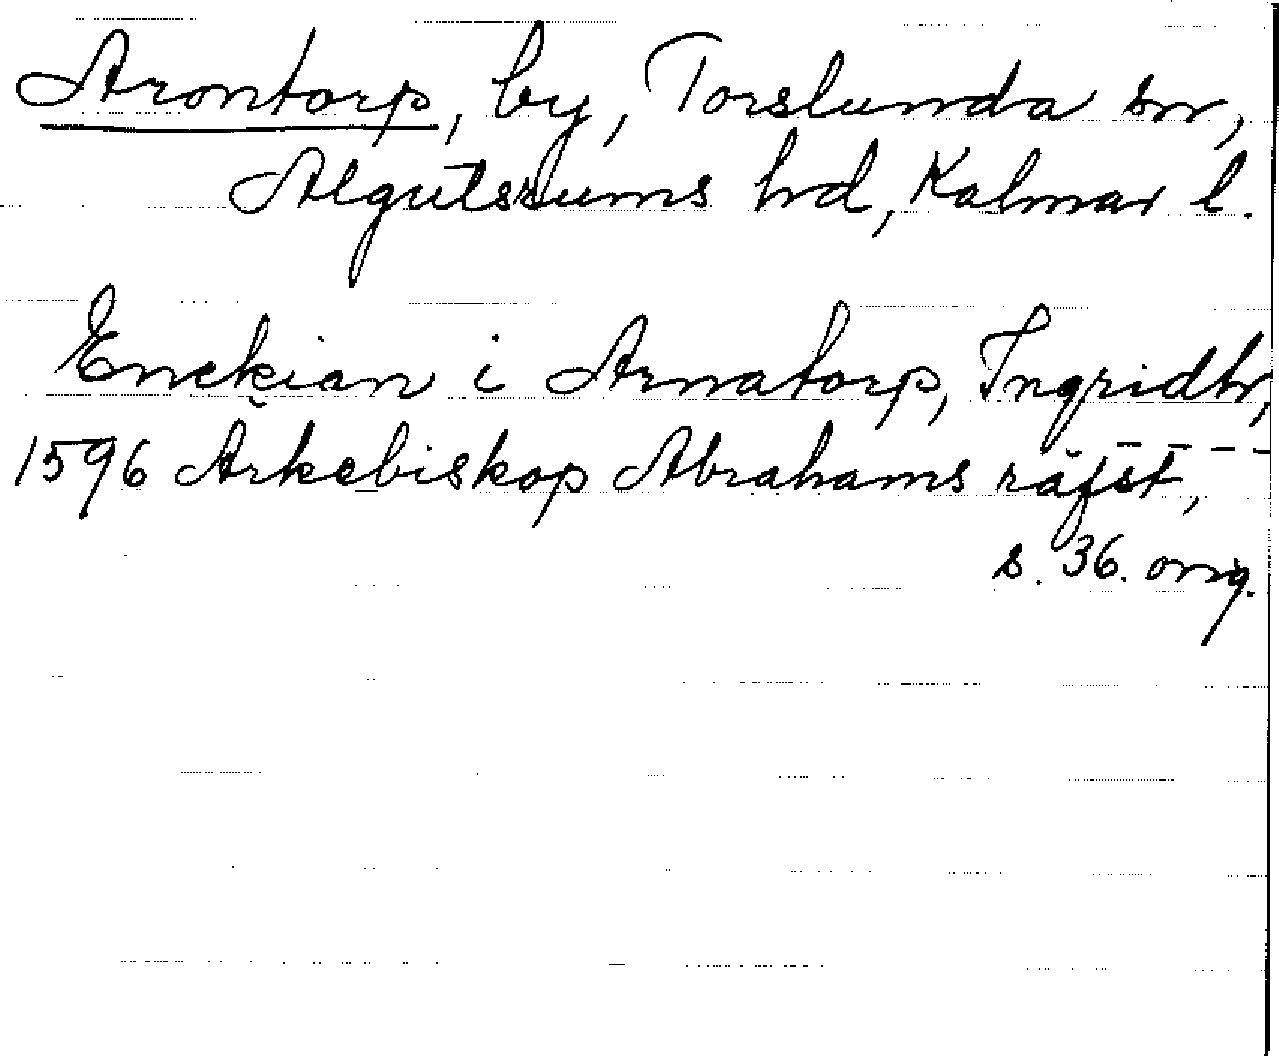 Arontorp, by, Torslunda sn,
Algutsrums hd, Kalmar l.
Enckian i Arnatorp, Ingridh,
1596 Ärkebiskop Abrahams räfst,
s. 36. orig.